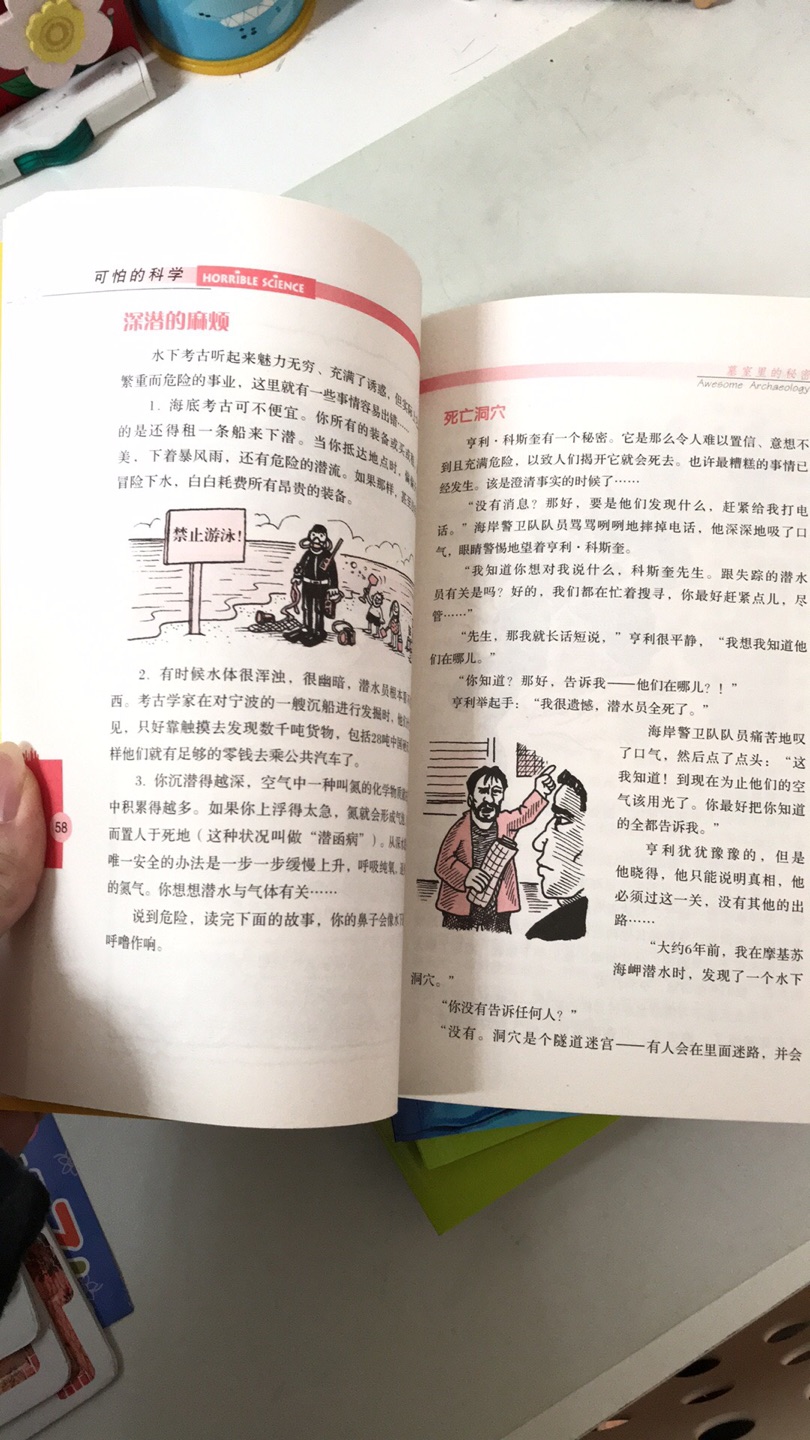 可怕的科学 HORRIBLE SCIENCE
深潜的麻烦
水下考古听起来魅力无穷、充满了诱惑，但实际上
繁重而危险的事业，这里就有一些事情容易出错……
1. 海底考古可不便宜。你所有的装备或买或租，
的是还得租一条船来下潜。当你抵达地点时，
美，下着暴风雨，还有危险的潜流。如果那样，甚至
冒险下水，白白耗费所有昂贵的装备。
禁止游泳！
2. 有时候水体很浑浊，很幽暗，潜水员根本
西。考古学家在对宁波的一艘沉船进行发掘时，他们
见，只好靠触摸去发现数千吨货物，包括28吨中国
样他们就有足够的零钱去乘公共汽车了。
3. 你沉潜得越深，空气中一种叫氮的化学物质
中积累得越多。如果你上浮得太急，氮就会形成气泡
而置人于死地（这种状况叫做“潜函病”）。从深水
唯一安全的办法是一步一步缓慢上升，呼吸纯氧，
的氮气。你想想潜水与气体有关……
说到危险，读完下面的故事，你的鼻子会像水下
呼噜作响。
58
墓室里的秘密
Awesome Archaeology
死亡洞穴
亨利·科斯奎有一个秘密。它是那么令人难以置信、意想不
到且充满危险，以致人们揭开它就会死去。也许最糟糕的事情已
经发生。该是澄清事实的时候了……
“没有消息？那好，要是他们发现什么，赶紧给我打电
话。”海岸警卫队队员骂骂咧咧地摔掉电话，他深深地吸了口
气，眼睛警惕地望着亨利·科斯奎。
“我知道你想对我说什么，科斯奎先生。跟失踪的潜水
员有关是吗？好的，我们都在忙着搜寻，你最好赶紧点儿，尽
管……”
“先生，那我就长话短说，”亨利很平静，“我想我知道他
们在哪儿。”
“你知道？那好，告诉我——他们在哪儿？！”
亨利举起手：“我很遗憾，潜水员全死了。”
海岸警卫队队员痛苦地叹
了口气，然后点了点头：“这
我知道！到现在为止他们的空
气该用光了。你最好把你知道
的全都告诉我。”
亨利犹犹豫豫的，但是
他晓得，他只能说明真相，他
必须过这一关，没有其他的出
路……
“大约6年前，我在摩基苏
海岬潜水时，发现了一个水下
洞穴。”
“你没有告诉任何人？”
“没有。洞穴是个隧道迷宫——有人会在里面迷路，并会